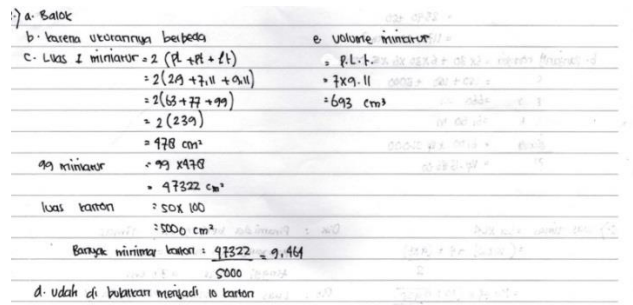 a. Balok
b. karena ukurannya berbeda
c. Luas 1 miniatur = 2 (Pl + Pt + lt)
= 2 (29 + 7.11 + 9.11)
= 2 (63 + 77 + 99)
= 2 (239)
= 478 cm²
99 miniatur = 99 x 478
= 47322 cm²
luas karton = 50 x 100
= 5000 cm²
Banyak minimal karton = 47322 / 5000 = 9,464
d. udah di bulatkan menjadi 10 karton
e volume miniatur
= P.L.t.
= 7x9.11
= 693 cm³